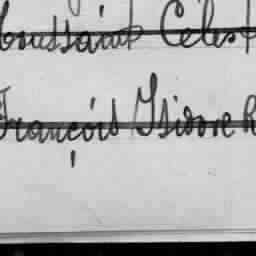 Toussaint Célest
François Isidore R